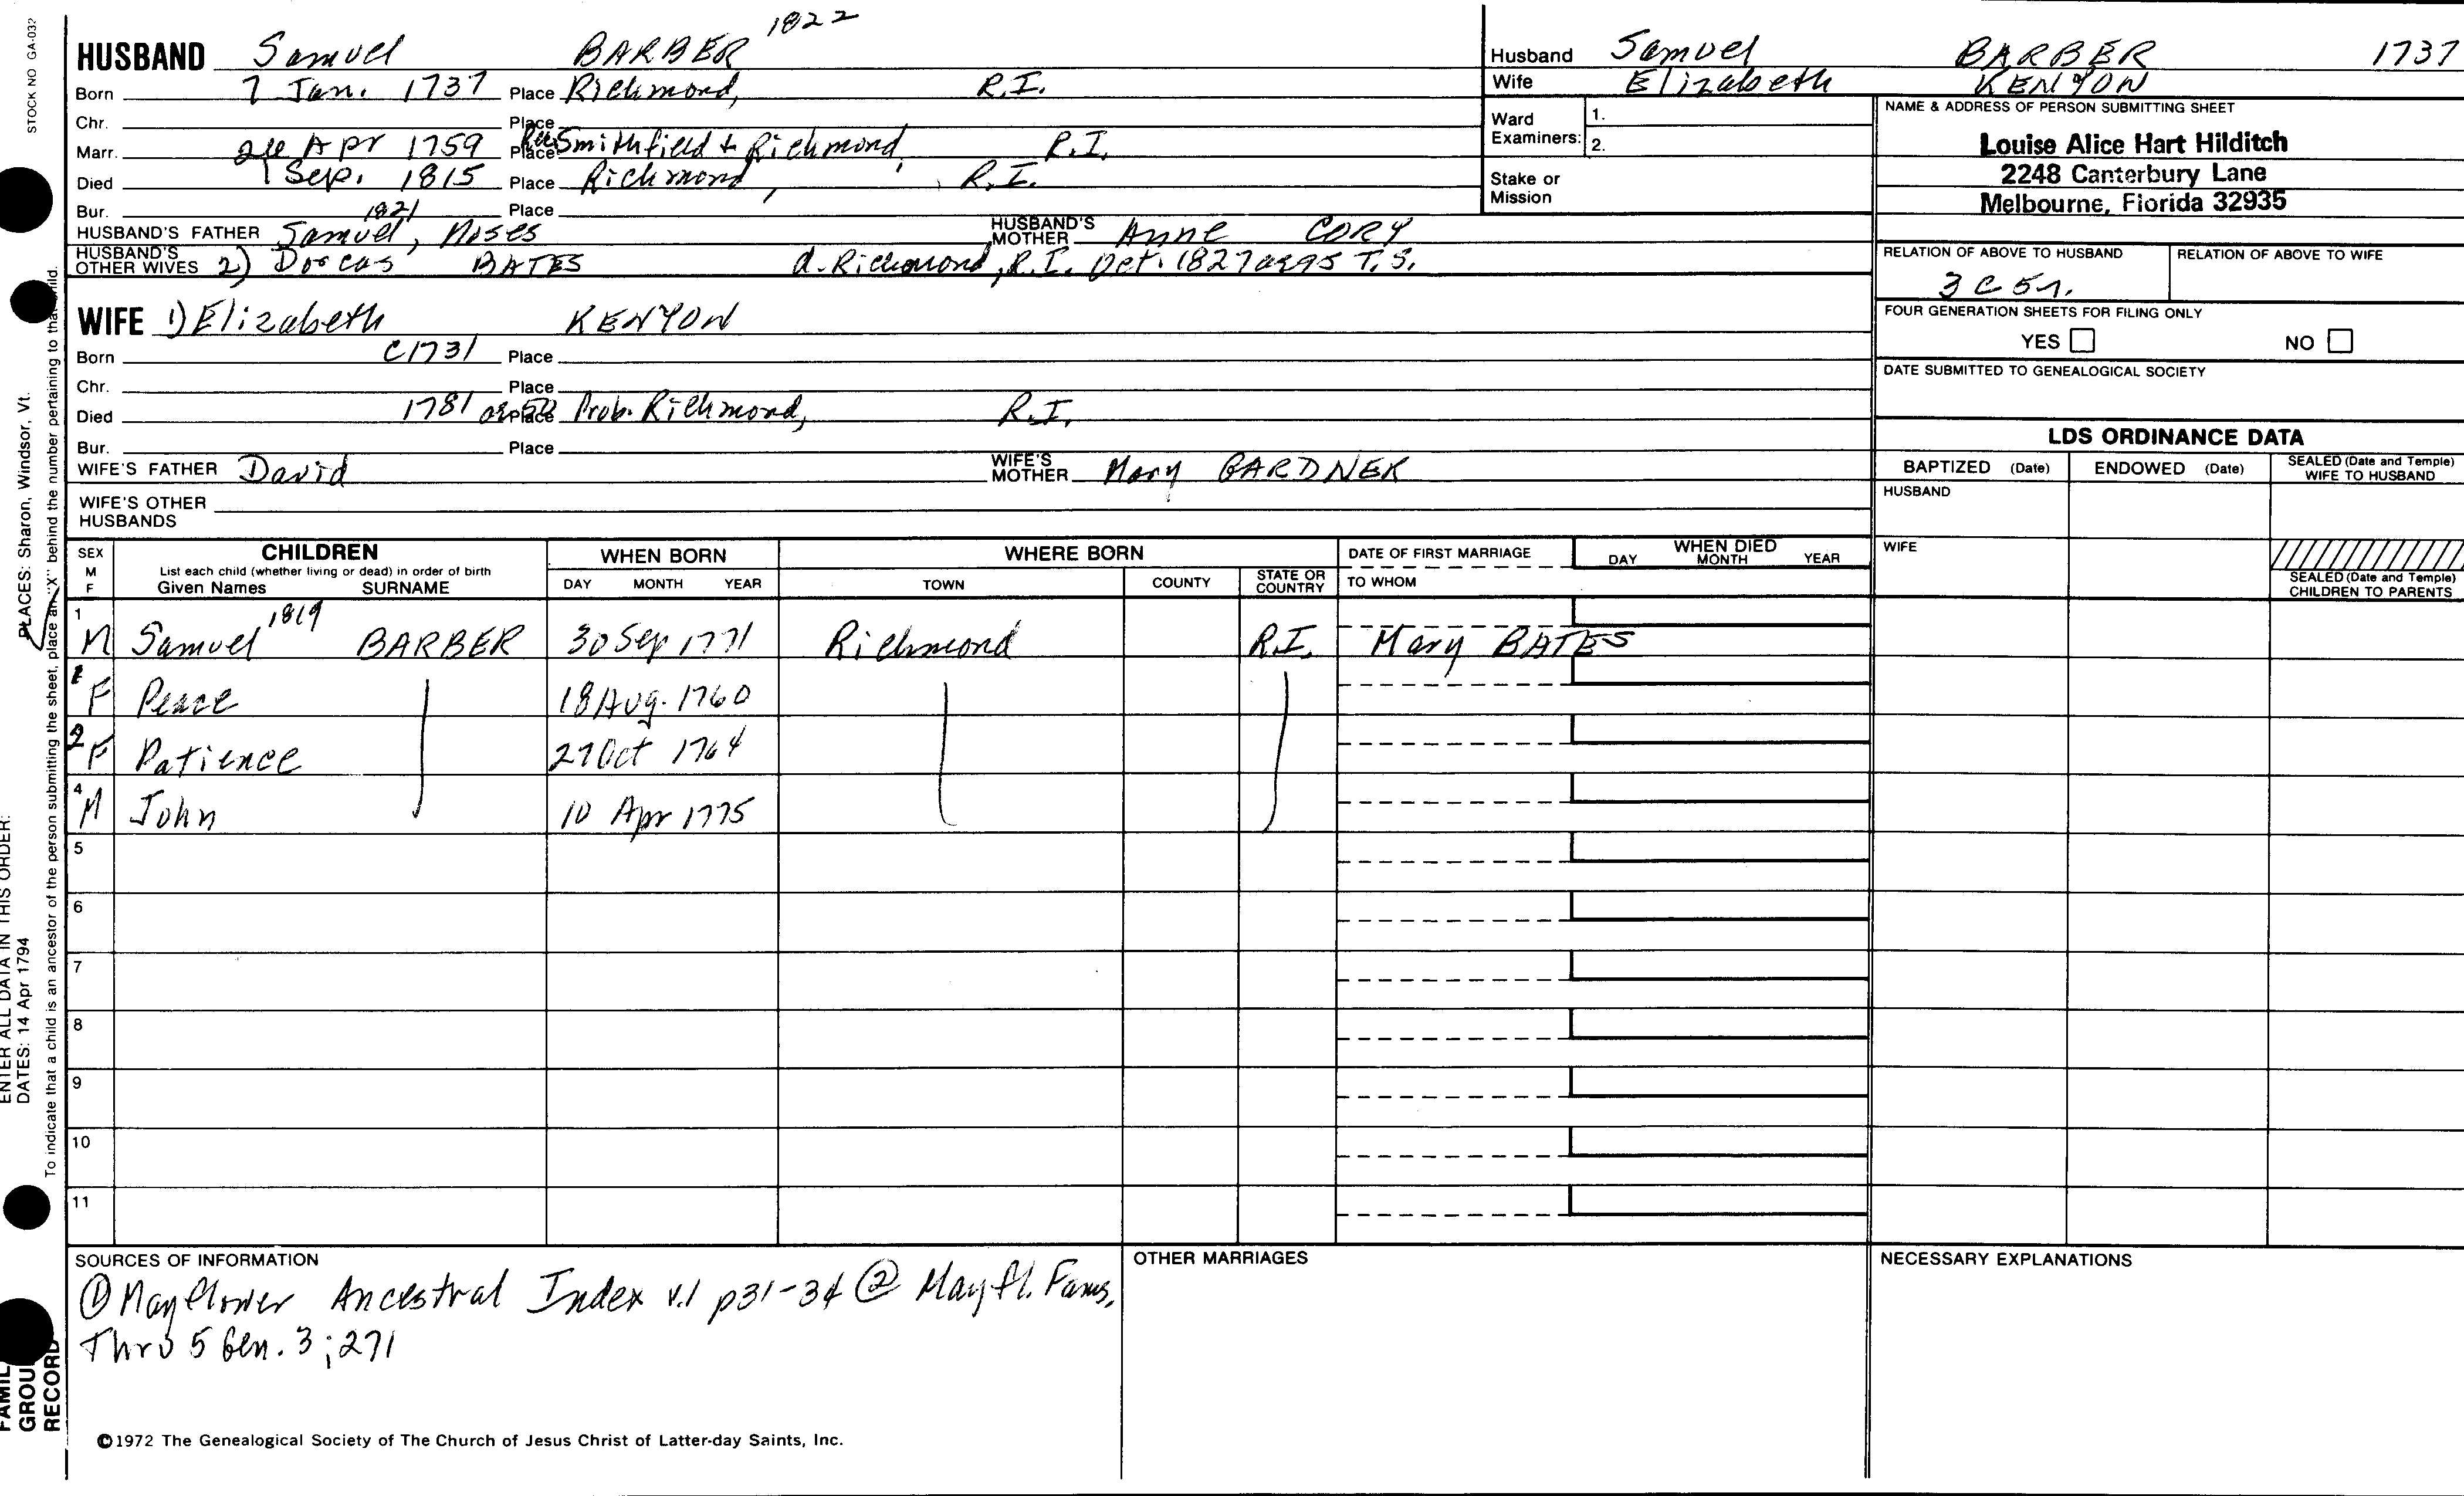 STOCK NO GA-032
1822
HUSBAND Samuel BARBER
Born 7 Jan. 1737 Place Richmond, R.I.
Chr. Place
Marr. Apr 1759 Place Smithfield & Richmond, R.I.
Died Sep. 1815 Place Richmond, R.I.
Bur. 1821 Place
HUSBAND'S FATHER Samuel, Moses HUSBAND'S MOTHER Anne CORY
HUSBAND'S OTHER WIVES 2) Dorcas BATES d. Richmond, R.I. Oct. 1827 ae 95 T.S.
WIFE 1) Elizabeth KENYON
Born C1731 Place
Chr. Place
Died 1781 ae 50 Place Prob. Richmond, R.I.
Bur. Place
WIFE'S FATHER David WIFE'S MOTHER Mary GARDNER
WIFE'S OTHER HUSBANDS
Husband Samuel BARBER 1737
Wife Elizabeth KENYON
Ward Examiners: 1.
2.
Stake or Mission
NAME & ADDRESS OF PERSON SUBMITTING SHEET
Louise Alice Hart Hilditch
2248 Canterbury Lane
Melbourne, Florida 32935
RELATION OF ABOVE TO HUSBAND RELATION OF ABOVE TO WIFE
3 C 5r.
FOUR GENERATION SHEETS FOR FILING ONLY
YES NO
DATE SUBMITTED TO GENEALOGICAL SOCIETY
LDS ORDINANCE DATA
BAPTIZED (Date) ENDOWED (Date) SEALED (Date and Temple) WIFE TO HUSBAND
HUSBAND
WIFE
SEALED (Date and Temple) CHILDREN TO PARENTS
SEX M F CHILDREN WHEN BORN WHERE BORN DATE OF FIRST MARRIAGE WHEN DIED
List each child (whether living or dead) in order of birth
Given Names SURNAME DAY MONTH YEAR TOWN COUNTY STATE OR COUNTRY TO WHOM DAY MONTH YEAR
1 M Samuel 1819 BARBER 30 Sep 1771 Richmond R.I. Mary BATES
F Peace 18 Aug. 1760
2 F Patience 27 Oct 1764
4 M John 10 Apr 1775
5
6
7
8
9
10
11
SOURCES OF INFORMATION
① Mayflower Ancestral Index v.1 p31-34 ② Mayfl. Fams.
Thru 5 Gen. 3;271
OTHER MARRIAGES
NECESSARY EXPLANATIONS
©1972 The Genealogical Society of The Church of Jesus Christ of Latter-day Saints, Inc.
PLACES: Sharon, Windsor, Vt.
ENTER ALL DATA IN THIS ORDER:
DATES: 14 Apr 1794
To indicate that a child is an ancestor of the person submitting the sheet, place an "X" behind the number pertaining to that child.
FAMILY
GROUP
RECORD